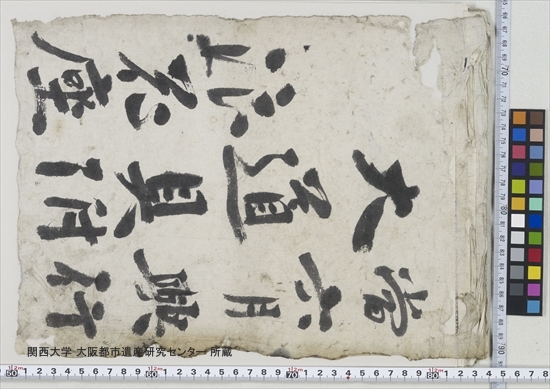 當六月興行
大道具附
浪花座
関西大学 大阪都市遺産研究センター 所蔵